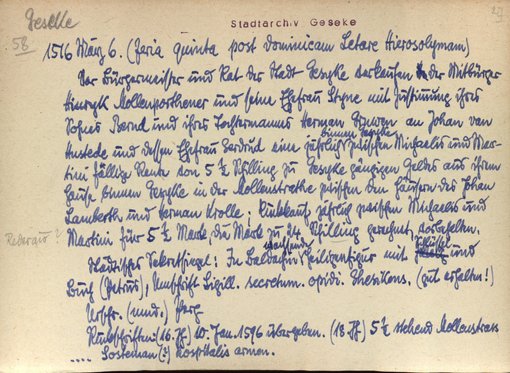 Geseke
58
Stadtarchiv Geseke
1516 März 6. (feria quinta post dominicam Letare Hierosolymam)
Der Bürgermeister und Rat der Stadt Gesyke verkaufen der Mitbürger
Hinryk Mollenporthener und seine Ehefrau Styne mit Zustimmung ihres
Sohnes Bernd und ihres Tochtermannes Herman an Johan van
Anstede und dessen Ehefrau Gerdrud eine jährlich zwischen Michaelis und Mar-
binnen Gesyke
tini fällige Rente von 5 ½ Schilling zu Gesyke gängigen Geldes aus ihrem
Hause binnen Gesyke in der Mollenstrathe zwischen den Häusern des Johan
Lamberth und Herman Krolle; Rückkauf jährlich zwischen Michaelis und
Rederaio?
Martini für 5 ½ Mark, die Mark zu 24 Schilling gerechnet, vorbehalten.
Städtisches Sekretsiegel: In Baldachin Heiligenfigur mit Schlüssel und
Buch (Petrus), Umschrift Sigill. secretum. opidi. Ghesikens. (gut erhalten!)
Urschr. (nnd.) Perg.
Rückschriften: (16. Jh) 10. Jan. 1596 übergeben. (18. Jh) 5 ½ stehend Mollenstrass
.... Sosteman (?) hospitalis armen.